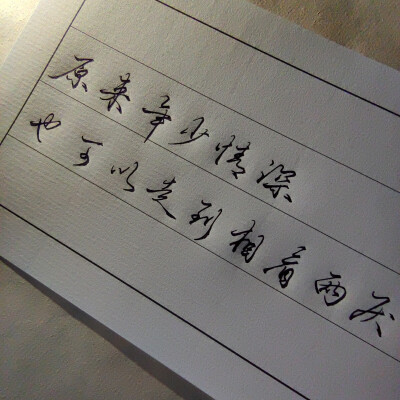 原来年少情深
也可以走到相看两厌